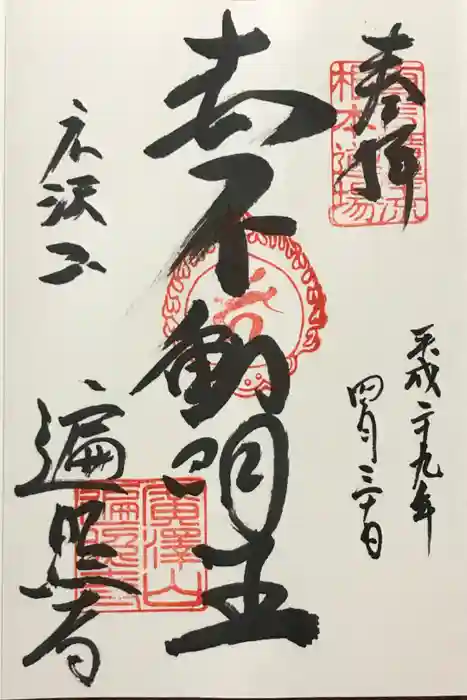 奉拝
平成二十九年
四月三十日
赤不動明王
広沢山
遍照寺
廣澤山
遍照寺